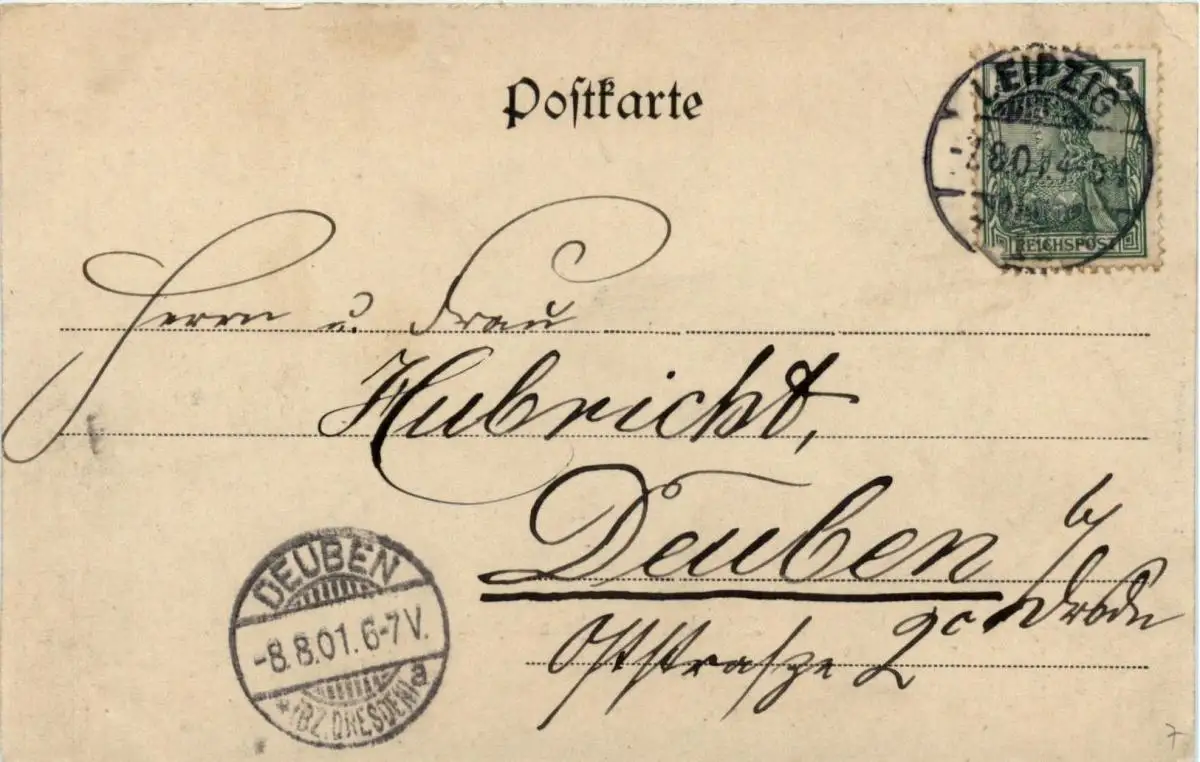 Postkarte
LEIPZIG
8.01.4-5
5
REICHSPOST
Herrn u. Frau
Hubricht,
Deuben b/
Dresdn
Oststrasze 2c
DEUBEN
-8.8.01.6-7V.
*(BZ. DRESDEN) a
7